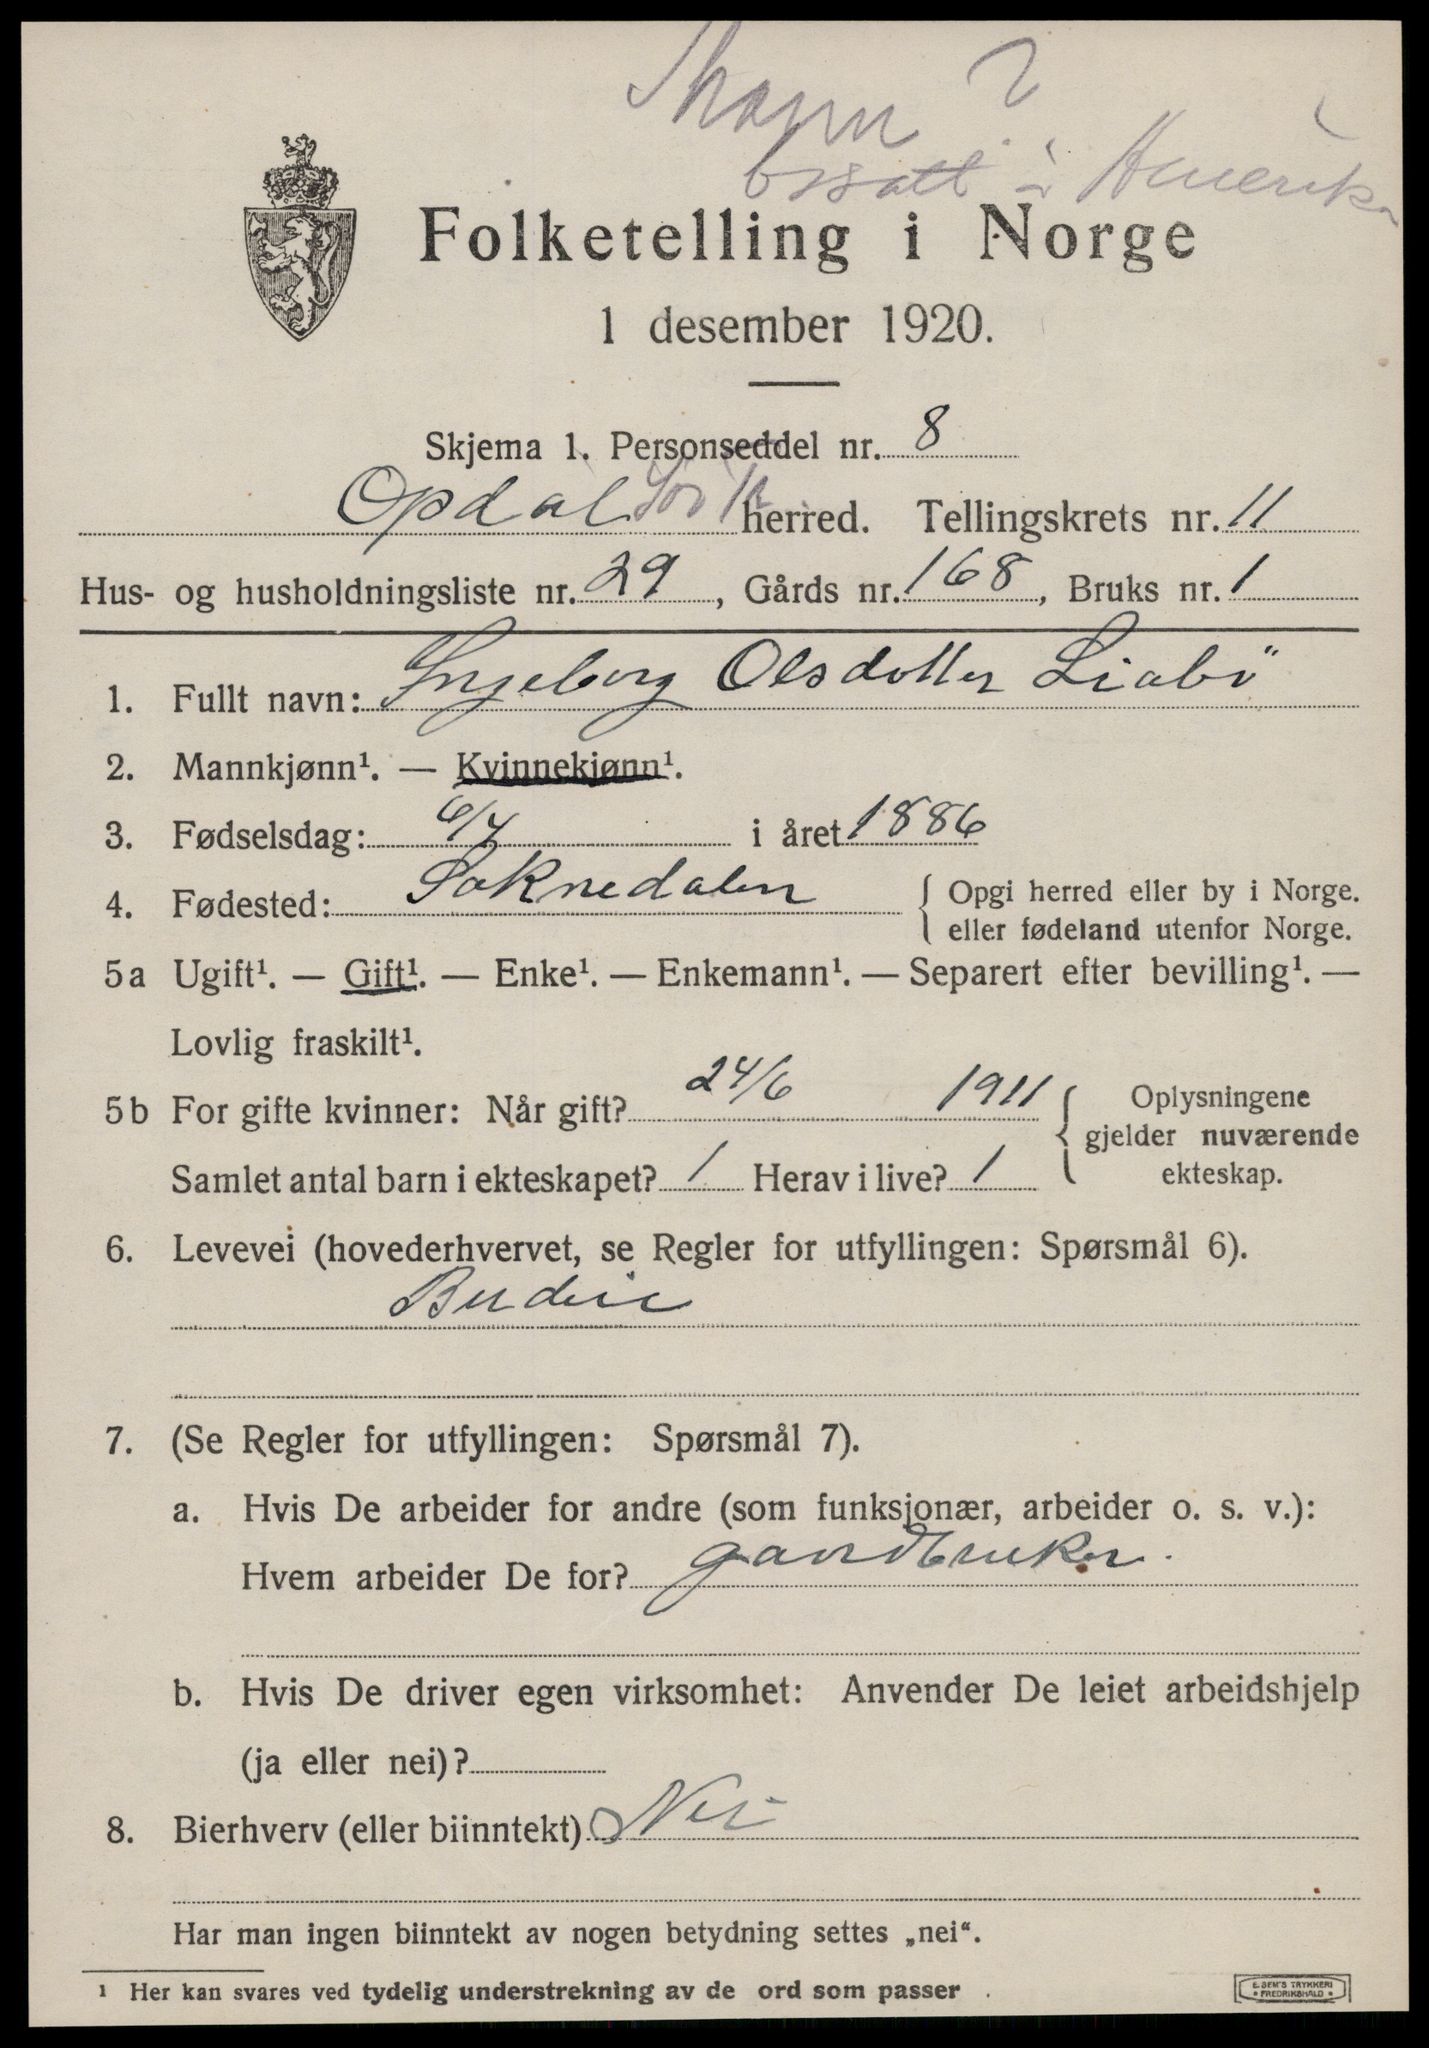 Mann?
bosatt i Amerika
Folketelling i Norge
1 desember 1920.
Skjema 1. Personseddel nr. 8
Opdal herred. Tellingskrets nr. 11
Hus- og husholdningsliste nr. 29, Gårds nr. 168, Bruks nr. 1
1. Fullt navn: Ingeborg Olsdotter Liabö
2. Mannkjønn¹. — Kvinnekjønn¹.
3. Fødselsdag: 6/7 i året 1886
4. Fødested: Soknedalen { Opgi herred eller by i Norge.
eller fødeland utenfor Norge.
5a Ugift¹. — Gift¹. — Enke¹. — Enkemann¹. — Separert efter bevilling¹. —
Lovlig fraskilt¹.
5b For gifte kvinner: Når gift? 24/6 1911 { Oplysningene
gjelder nuværende
ekteskap.
Samlet antal barn i ekteskapet? 1 Herav i live? 1
6. Levevei (hovederhvervet, se Regler for utfyllingen: Spørsmål 6).
Budeie
7. (Se Regler for utfyllingen: Spørsmål 7).
a. Hvis De arbeider for andre (som funksjonær, arbeider o. s. v.):
Hvem arbeider De for? gaardbruker.
b. Hvis De driver egen virksomhet: Anvender De leiet arbeidshjelp
(ja eller nei)?
8. Bierhverv (eller biinntekt) Nei
Har man ingen biinntekt av nogen betydning settes „nei“.
¹ Her kan svares ved tydelig understrekning av de ord som passer.
E. SEM'S TRYKKERI
* FREDRIKSHALD *